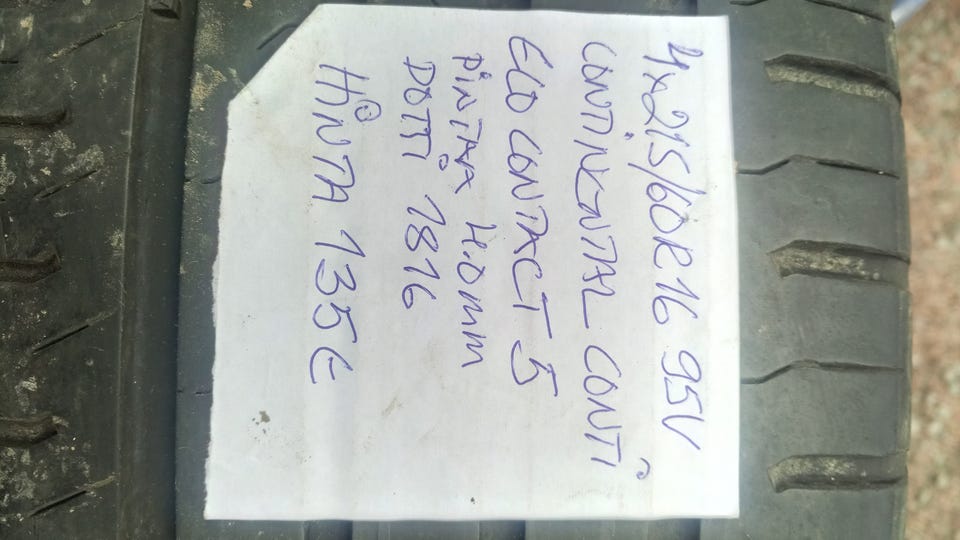 4x215/60R16 95V
CONTINENTAL CONTI
ECO CONTACT 5
PINTAA 4.0mm
DOTTI 1816
HINTA 135€